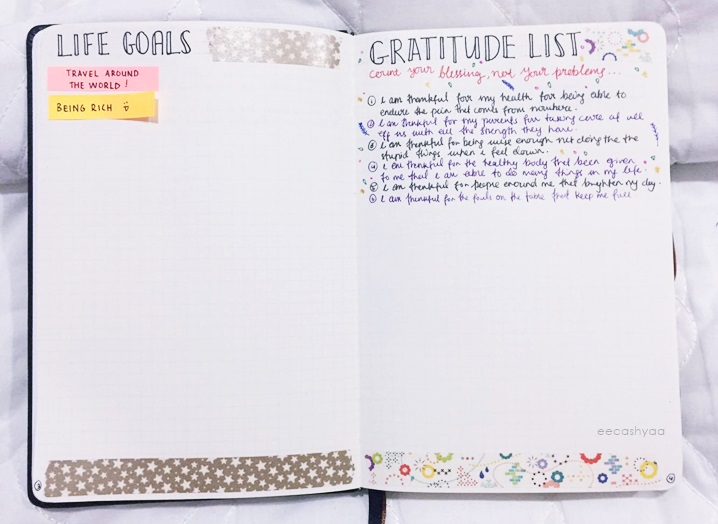 LIFE GOALS
TRAVEL AROUND
THE WORLD !
BEING RICH
GRATITUDE LIST
count your blessing, not your problems...
① I am thankful for my health for being able to
endure the pain that comes from nowhere.
② I am thankful for my parents for taking care of all
of us with all the strength they have.
③ I am thankful for being wise enough not doing the the
stupid things when I feel down.
④ I am thankful for the healthy body that been given
to me that I am able to do many things in my life.
⑤ I am thankful for people around me that brighten my day.
⑥ I am thankful for the foods on the table that keep me full.
eecashyaa